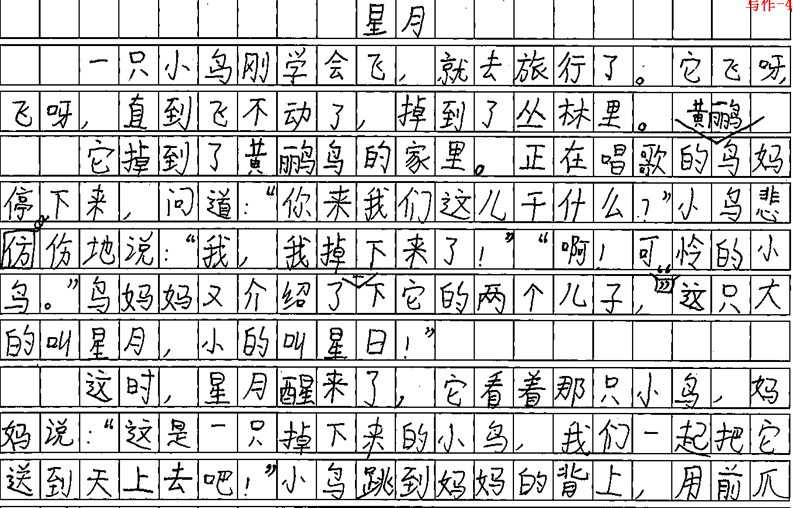 写作-4
星月
一只小鸟刚学会飞，就去旅行了。它飞呀
飞呀，直到飞不动了，掉到了丛林里。
黄鹂鸟
它掉到了黄鹂鸟的家里。正在唱歌的鸟妈
停下来，问道：“你来我们这儿干什么？”小鸟悲
伤地说：“我，我掉下来了！”“啊！可怜的小
鸟。”鸟妈妈又介绍了下它的两个儿子，“这只大
的叫星月，小的叫星日！”
这时，星月醒来了，它看着那只小鸟，妈
妈说：“这是一只掉下来的小鸟，我们一起把它
送到天上去吧！”小鸟跳到妈妈的背上，用前爪